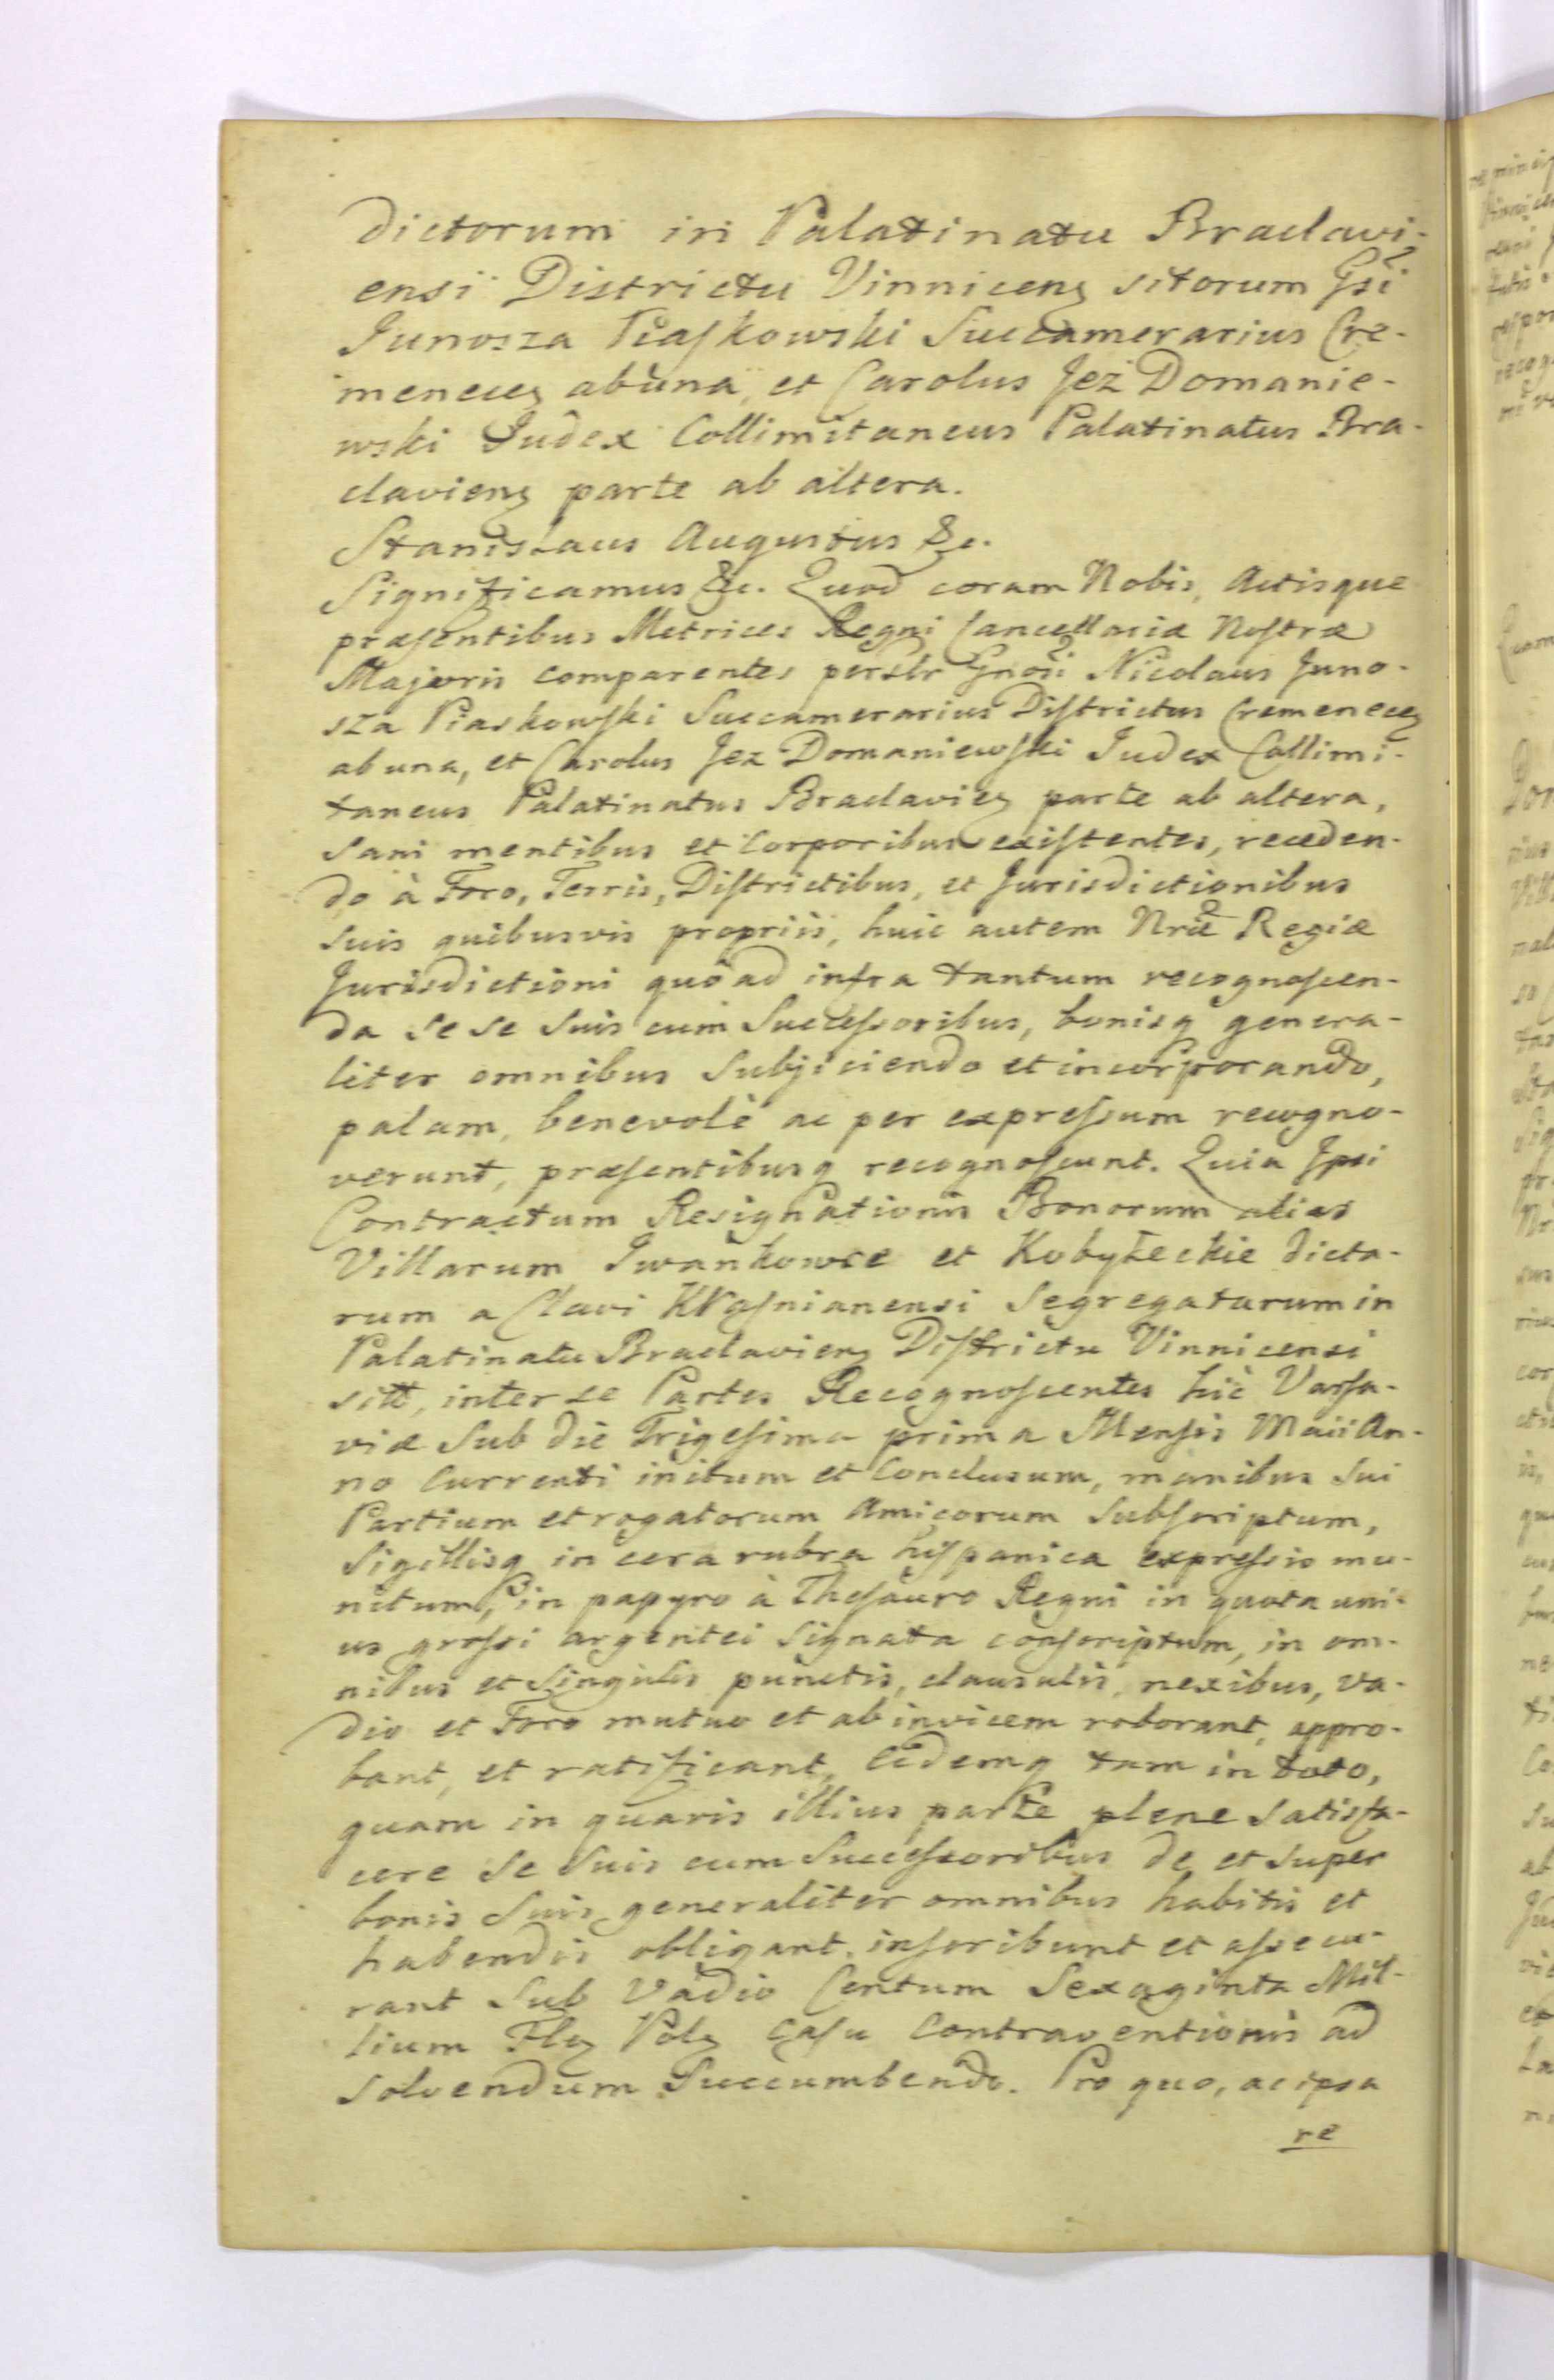 dictorum in Palatinatu Braclavi-
ensi Districtu Vinnicens sitorum Gsi
Junosza Piaskowski Succamerarius Cre-
menecen ab una, et Carolus Jez Domanie-
wski Judex Collimitaneus Palatinatus Bra-
claviens parte ab altera.
Stanislaus Augustus &c.
Significamus &c. Quod coram Nobis, Actisque
præsentibus Metrices Regni Cancellariæ Nostræ
Majoris comparentes perslr Gnosi Nicolaus Juno-
sza Piaskowski Succamerarius Districtus Cremenecen
ab una, et Carolus Jez Domaniewski Judex Collimi-
taneus Palatinatus Braclavien parte ab altera,
sani mentibus et Corporibus existentes, receden-
do à Foro, Terris, Districtibus, et Jurisdictionibus
suis quibusvis propriis, huic autem Nræ Regiæ
Jurisdictioni quo ad infra tantum recognoscen-
da se se suis cum Successoribus, bonisq genera-
liter omnibus Subjiciendo et incorporando,
palam, benevolè ac per expressum recogno-
verunt, præsentibusq recognoscunt. Quia Ipsi
Contractum Resignationis Bonorum alias
Villarum Iwankowce et Kobyłeckie dicta-
rum a Clavi Krasnianensi Segregatarum in
Palatinatu Braclaviens Districtu Vinnicensi
sitt, inter se Partes Recognoscentes hic Varsa-
viæ Sub die Trigesima prima Mensis Maii An-
no Currenti initum et Conclusum, manibus Sui
Partium et rogatorum Amicorum Subscriptum,
Sigillisq in cera rubra hispanica expressis mu-
nitum, in papyro à Thesauro Regni in quota uni-
us grossi argentei Signata conscriptum, in om-
nibus et Singulis punctis, clausulis, nexibus, va-
dio et Foro mutuo et ab invicem roborant, appro-
bant, et ratificant, Eidemq tam in toto,
quam in quavis illius parte plene Satisfa-
cere Se Suis cum Successoribus de et super
bonis Suis generaliter omnibus habitis et
habendis obligant, inscribunt et assecu-
rant Sub Vadio Centum Sexaginta Mil-
lium Fln Poln Casu Contraventionis ad
solvendum Succumbendo. Pro quo, ac ipsa
re